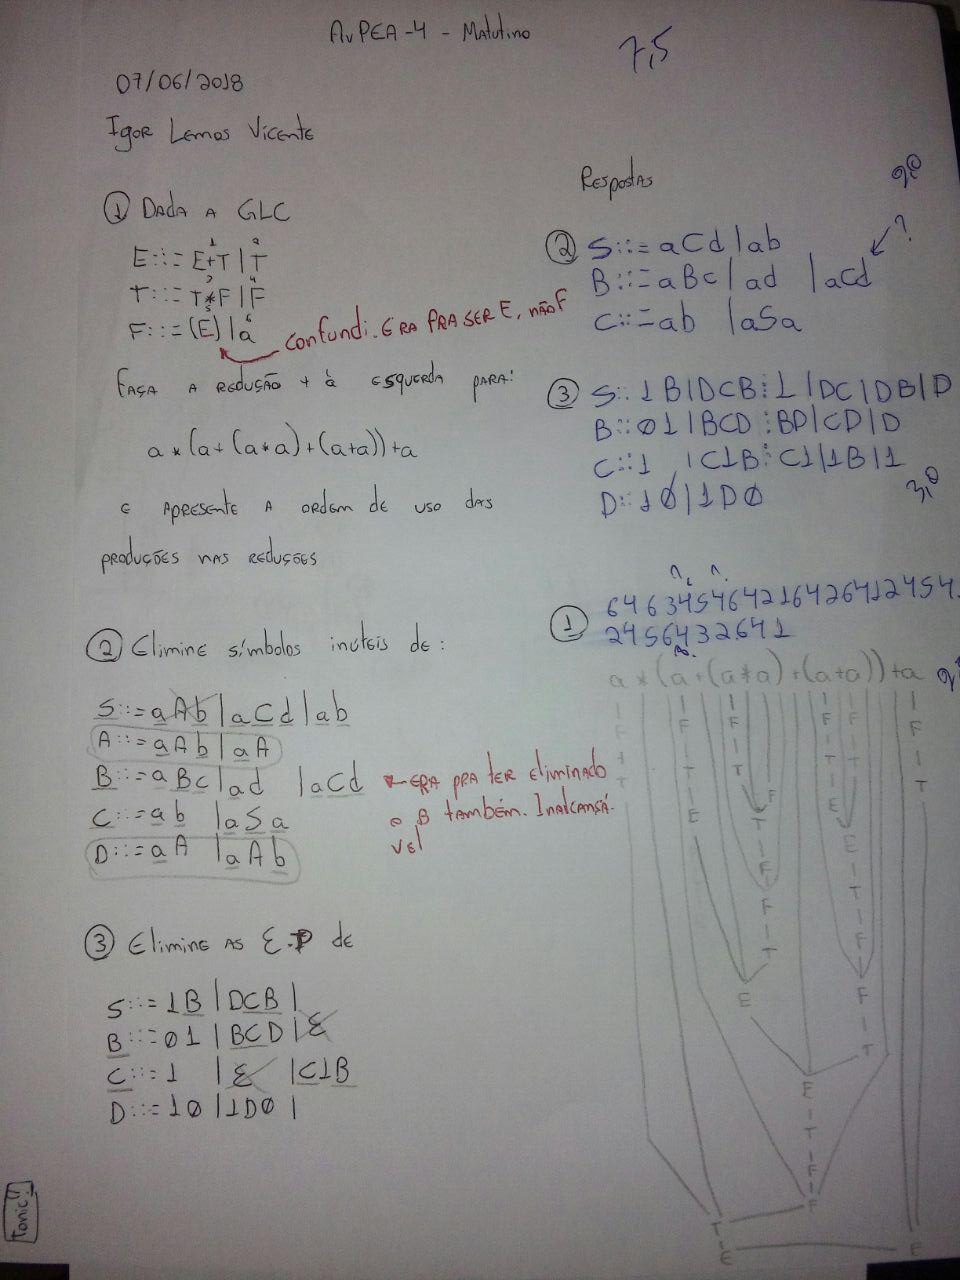 AvPEA-4 - Matutino
7,5
07/06/2018
Igor Lemos Vicente
① Dada a GLC
E::= E+T | T
1 2
T::= T*F | F
3 4
F::= (E) | a
5 6
confundi. Era pra ser E, não F
Faça a redução + à esquerda para:
a * (a + (a * a) + (a+a)) + a
e apresente a ordem de uso das
produções nas reduções
② Elimine símbolos inúteis de:
S::= aAb | aCd | ab
A::= aAb | aA
B::= aBc | ad | aCd
←era pra ter eliminado
o B também. Inalcançá-
vel
C::= ab | aSa
D::= aA | aAb
③ Elimine as ε.P de
S::= 1B | DCB |
B::= 01 | BCD | ε
C::= 1 | ε | C1B
D::= 10 | 1D0 |
Tonico
Respostas
② S::= aCd | ab
B::= aBc | ad | aCd
?
C::= ab | aSa
③ S:: 1B | DCB ⋮ 1 | DC | DB | D
B:: 01 | BCD ⋮ BD | CD | D
C:: 1 | C1B ⋮ C1 | 1B | 1
D:: 10 | 1D0
① 646345464216426412454
2456432641
a * (a + (a * a) + (a+a)) + a
F F F F F F
T T T T T T
E E E
F
T
F
E
F
T
E
T
F
F
T
E
E
T
F
F
T
E
E